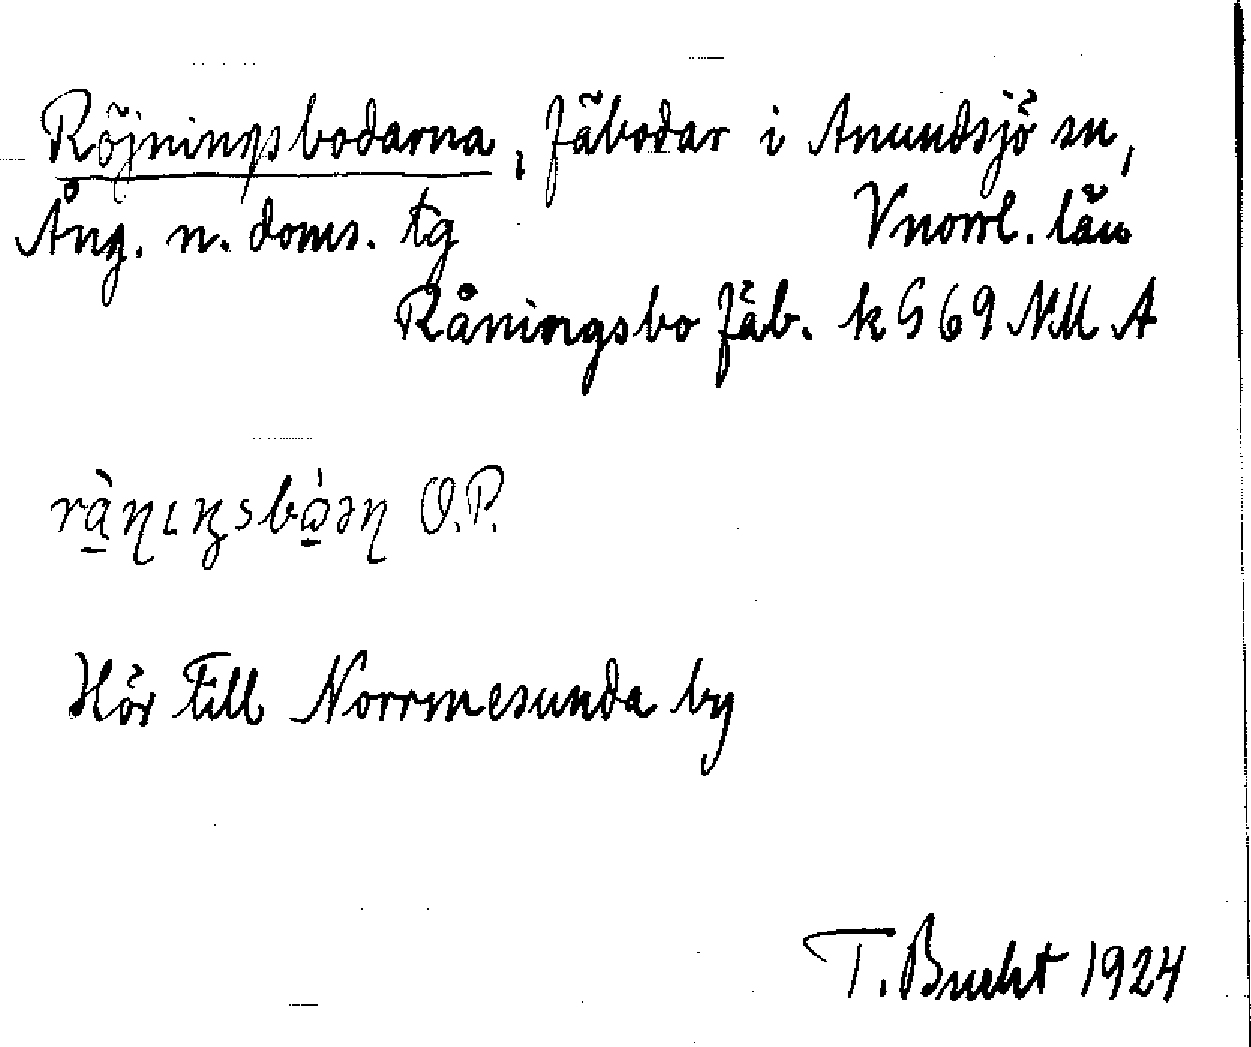 Röjningsbodarna, fäbodar i Anundsjö sn,
Ång. n. doms. tg Vnorrl. län
Råningsbo fäb. k G 69 NM A
O.P.
Hör till Norrmesunda by
T. Bucht 1924